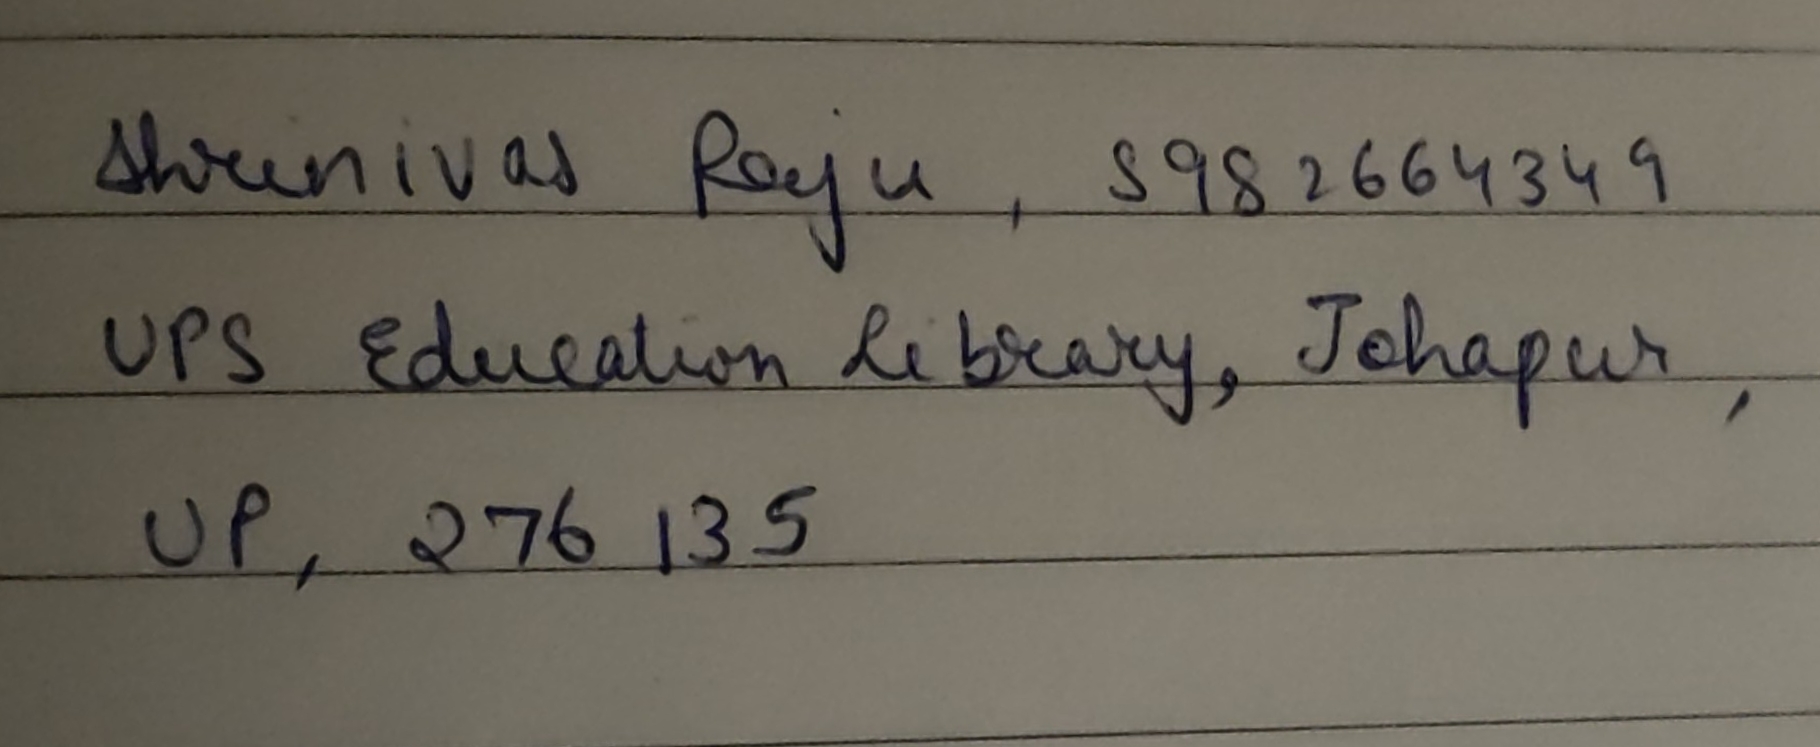 Shrinivas Raju, 5982664349
UPS Education Library, Johapur,
UP, 276135